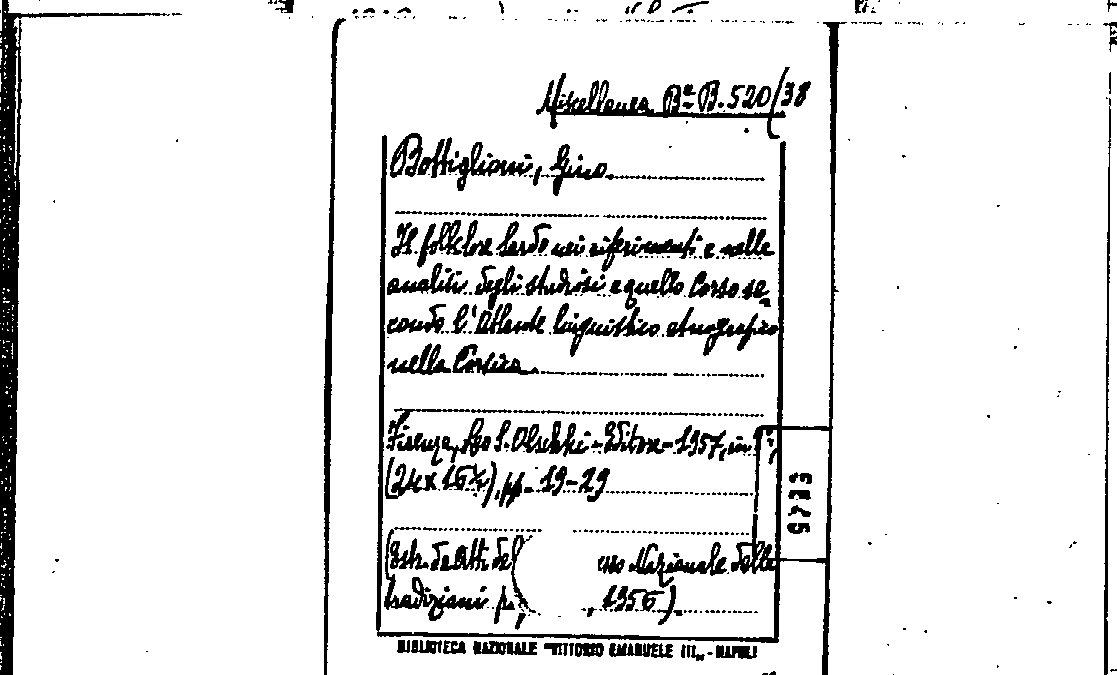 Miscellanea Bª B.520/38
Bottiglioni, Gino.
Il folklore sardo nei riferimenti e nelle
analisi degli studiosi e quello Corso se
condo l'Atlante linguistico etnografico
nella Corsica.
Firenze, Leo S. Olschki - Editore - 1957, in
(24x16½), pp. 19-29
(Estr. da Atti del
Nazionale delle
tradizioni p
, 1956).
BIBLIOTECA NAZIONALE "VITTORIO EMANUELE III„ - NAPOLI